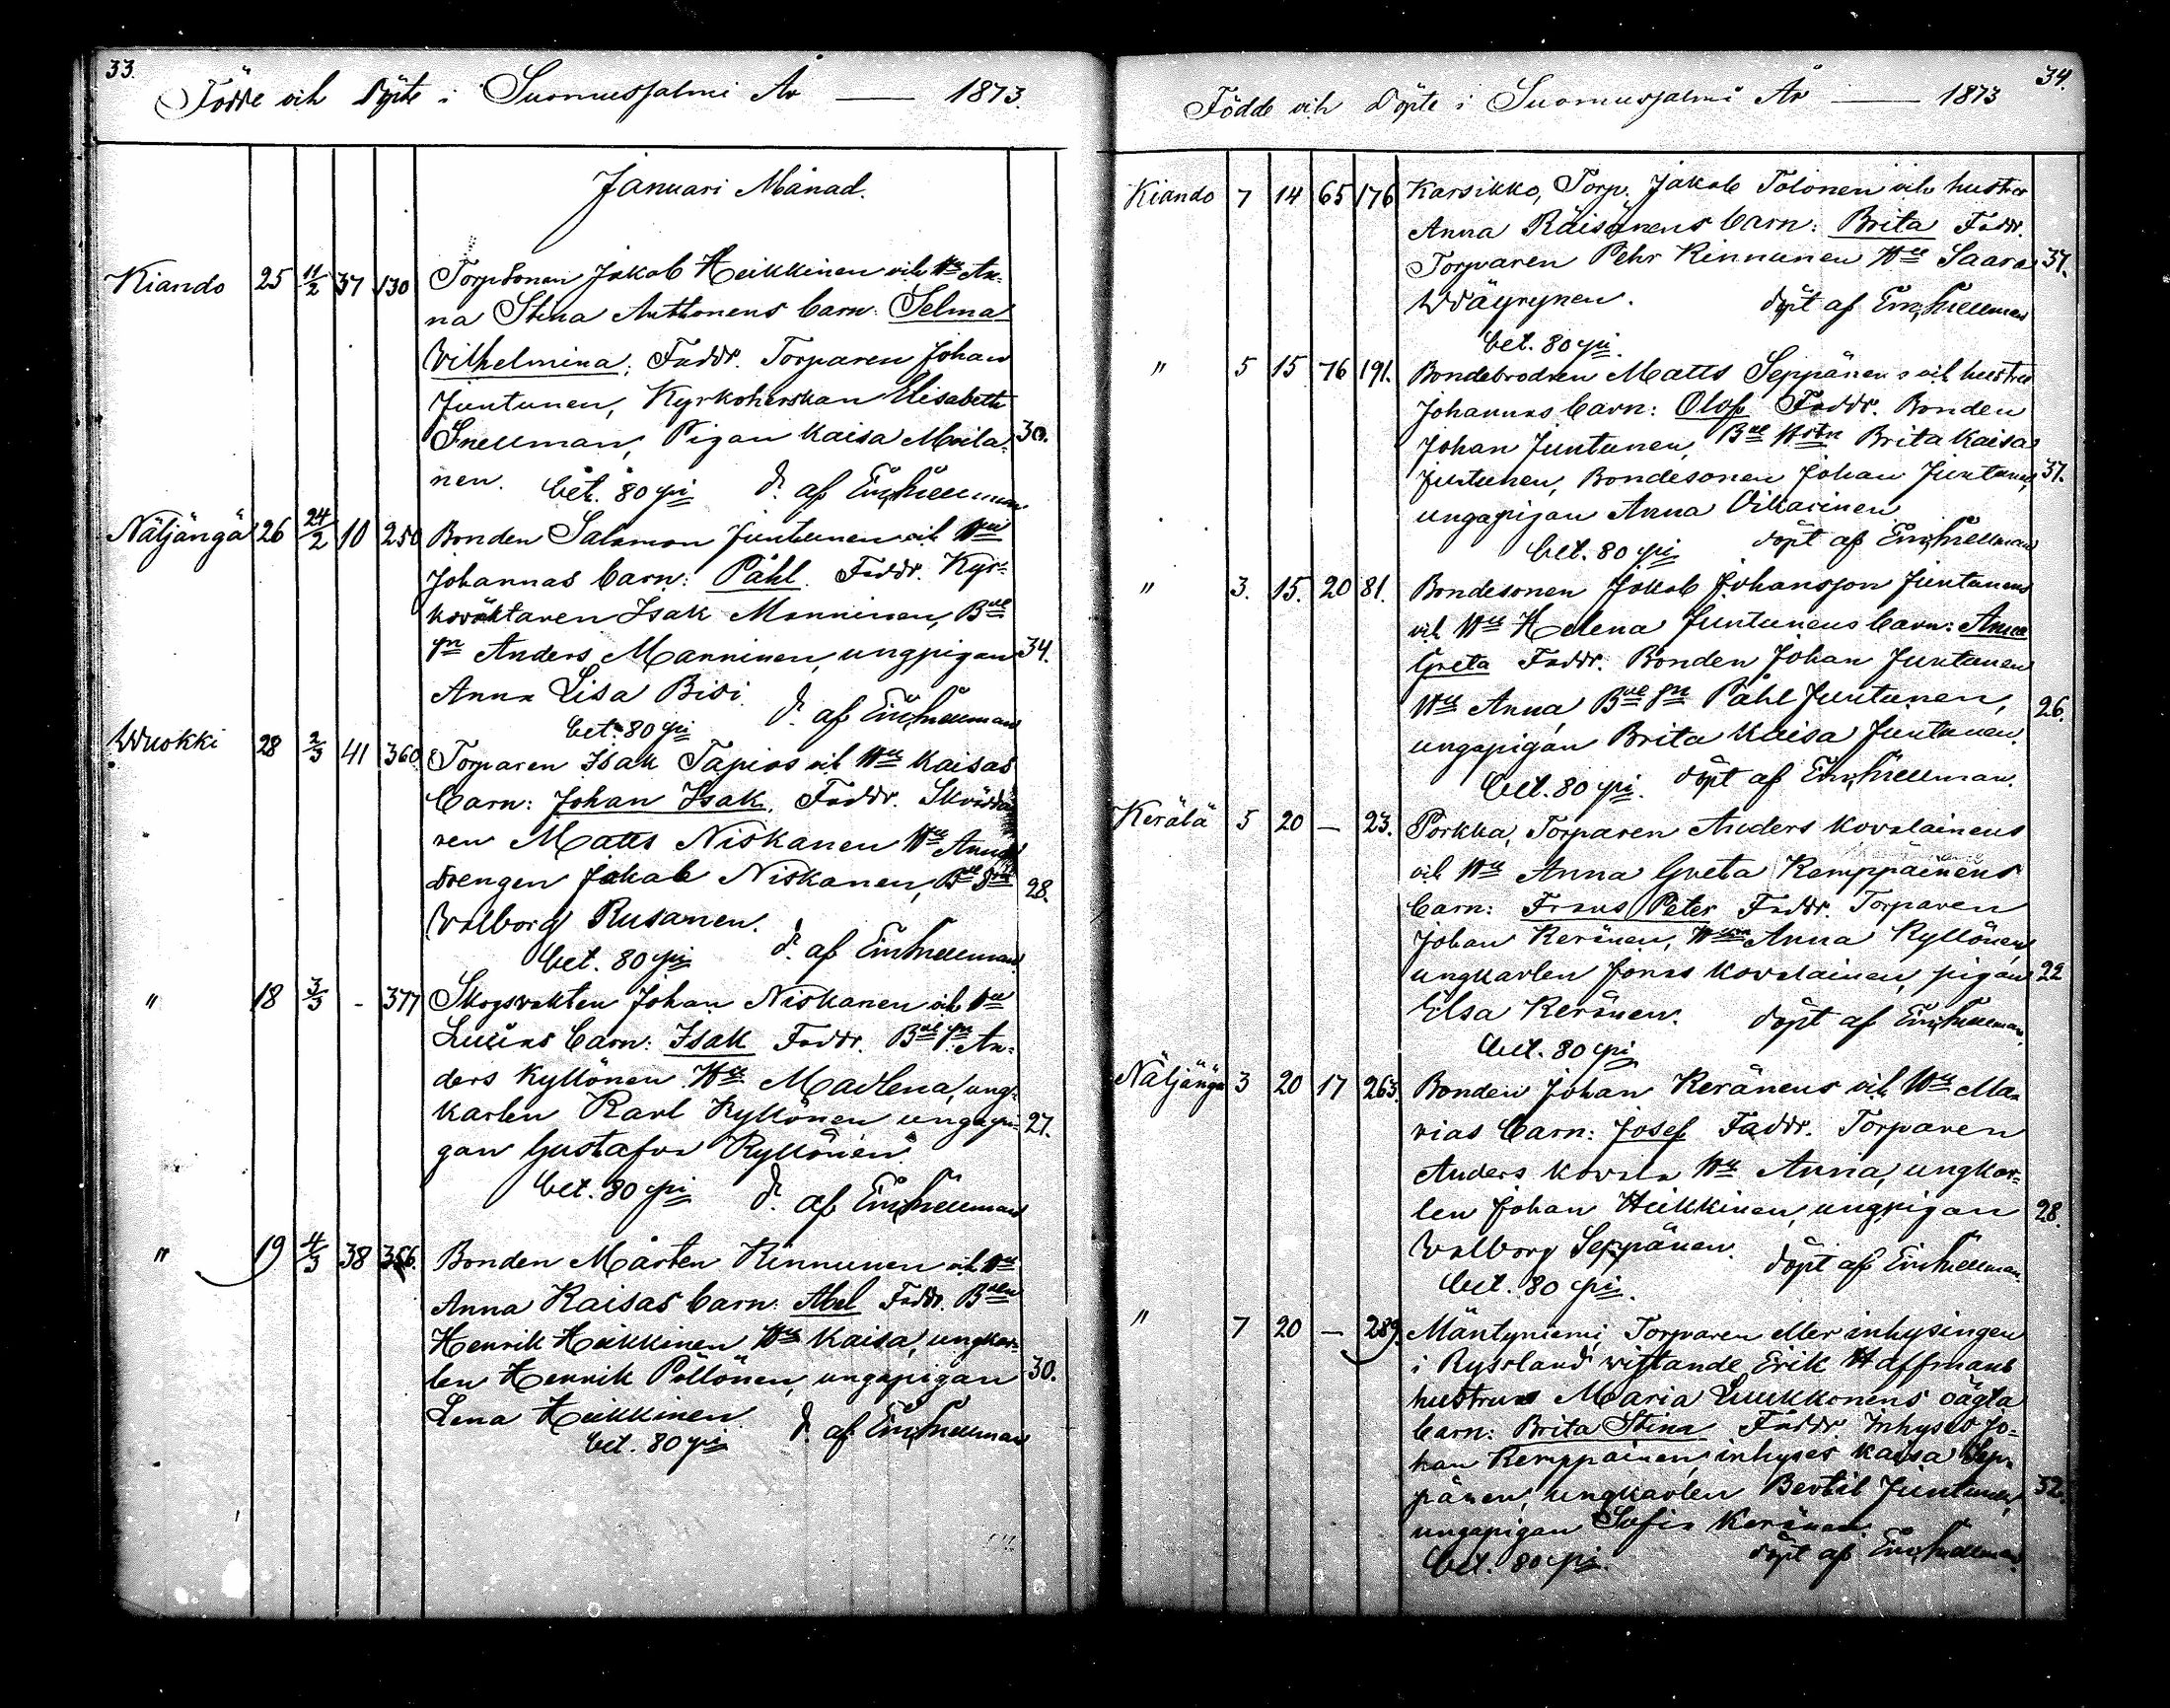 33.
Födde och Döpte i Suomussalmi År — 1873.
Januari Månad.
Kiando 25 11/2 37 130 Torpsonen Jakob Heikkinen och Hu An-
na Stina Anttonens barn: Selma
Wilhelmina; Faddr. Torparen Johan
Juntunen, Kyrkoherskan Elisabeth
Snellman, Pigan Kaisa Moila- 30.
nen. bet. 80 pi d. af Em. Snellman
Näljängä 26 24/2 10 250 Bonden Salomon Juntunen och Hu
Johannas barn: Påhl. Faddr. Kyr-
kovaktaren Isak Manninen, Bde
sn Anders Manninen, ungpigan 34.
Anna Lisa Bisi.
bet. 80 pi d. af Em. Snellman
Wuokki 28 2/3 41 360 Torparen Isak Tapios och Hu Kaisas
barn: Johan Isak. Faddr. Skrädda
ren Matts Niskanen Hu Anna,
drengen Jakob Niskanen, Bde
Walborg Rusanen. 28.
bet. 80 pi d. af Em. Snellman
" 18 3/3 - 377 Skogsvakten Johan Niskanen och Hu
Luisas barn: Isak Faddr. Bde sn An-
ders Kyllönen Hu Madlena, ung-
karlen Karl Kyllönen ungapi- 27.
gan Gustafva Kyllönen
bet. 80 pi d. af Em. Snellman
" 19 4/3 38 356. Bonden Mårten Kinnunen och Hu
Anna Kaisas barn: Abel Faddr. Bden
Henrik Heikkinen Hu Kaisa, ungkar-
len Henrik Pöllönen, ungapigan 30.
Lena Heikkinen
bet. 80 pi d. af Em. Snellman
34.
Födde och Döpte i Suomussalmi År — 1873
Kiando 7 14 65 176 Karsikko, Torp. Jakob Tolonen och hustru
Anna Räisänens barn: Brita Faddr.
Torparen Pehr Kinnunen Hu Saara 37.
Wäyrynen. döpt af Em. Snellman
bet. 80 pi.
" 5 15 76 191. Bondebrodren Matts Seppänens och hustru
Johannas barn: Olof Faddr. Bonden
Johan Juntunen, Bde Brita Kaisa
Juntunen, Bondesonen Johan Juntunen, 37.
ungapigan Anna Oikarinen
bet. 80 pi döpt af Em. Snellman
" 3. 15. 20 81. Bondesonen Jakob Johansson Juntunens
och Hu Helena Juntunens barn: Anna
Greta Faddr. Bonden Johan Juntunen
Hu Anna, Bde sn Påhl Juntunen, 26.
ungapigan Brita Kaisa Juntunen.
bet. 80 pi. döpt af Em. Snellman.
Kerälä 5 20 — 23. Porkka, Torparen Anders Kovalainens
och Hu Anna Greta Kemppäinens
barn: Frans Peter Faddr. Torparen
Johan Keränen, Anna Kyllönen
ungkarlen Jonas Kovalainen, pigan 22
Elsa Keränen. döpt af Em. Snellman.
bet. 80 pi
Näljängä 3 20 17 263. Bonden Johan Keränens och Hu Ma-
rias barn: Josef Faddr. Torparen
Anders Kovala Hu Anna, ungkar-
len Johan Heikkinen, ungpigan 28.
Walborg Seppänen. döpt af Em. Snellman.
bet. 80 pi.
" 7 20 — 289. Mäntyniemi, Torparen eller inhysingen
i Ryssland vistande Erik Haffmans
hustrus Maria Luukkonens oägta
barn: Brita Stina Faddr. Inhyses Jo-
han Kemppainen, inhyses Kaisa Sep-
pänen, ungkarlen Bertil Juntunen, 32.
ungapigan Sofia Keränen.
bet. 80 pi. döpt af Em. Snellman.